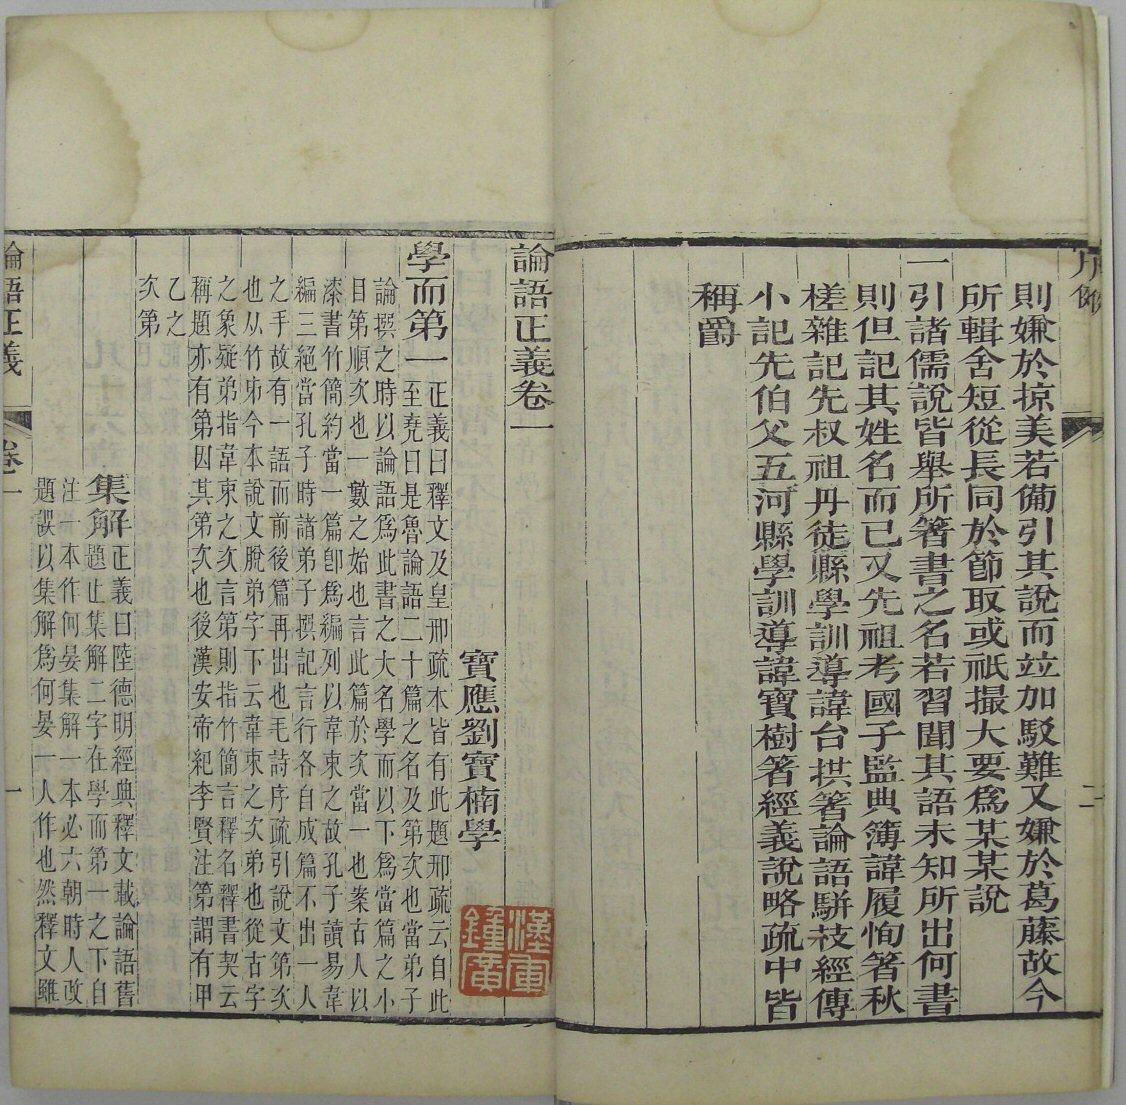 凡例 二
則嫌於掠美若備引其說而竝加駁難又嫌於葛藤故今
所輯舍短從長同於節取或祇撮大要爲某某說
一引諸儒說皆舉所箸書之名若習聞其語未知所出何書
則但記其姓名而已又先祖考國子監典簿諱履恂箸秋
槎雜記先叔祖丹徒縣學訓導諱台拱箸論語駢枝經傳
小記先伯父五河縣學訓導諱寶樹箸經義說略疏中皆
稱爵
論語正義卷一
寶應劉寶楠學
漢軍
鍾廣
學而第一
正義曰釋文及皇邢疏本皆有此題邢疏云自此
至堯曰是魯論語二十篇之名及第次也當弟子
論撰之時以論語爲此書之大名學而以下爲當篇之小
目第順次也一數之始也言此篇於次當一也案古人以
漆書竹簡約當一篇卽爲編列以韋束之故孔子讀易韋
編三絕當孔子時諸弟子撰記言行各自成篇不出一人
之手故有一語而前後篇再出也毛詩序疏引說文第次
也从竹弟今本說文脫弟字下云韋束之次弟也從古字
之象疑弟指韋束之次言第則指竹簡言釋名釋書契云
稱題亦有第因其第次也後漢安帝紀李賢注第謂有甲
乙之
次第
集解
正義曰陸德明經典釋文載論語舊
題止集解二字在學而第一之下自
注一本作何晏集解一本必六朝時人改
題誤以集解爲何晏一人作也然釋文雖
論語正義 卷一 一